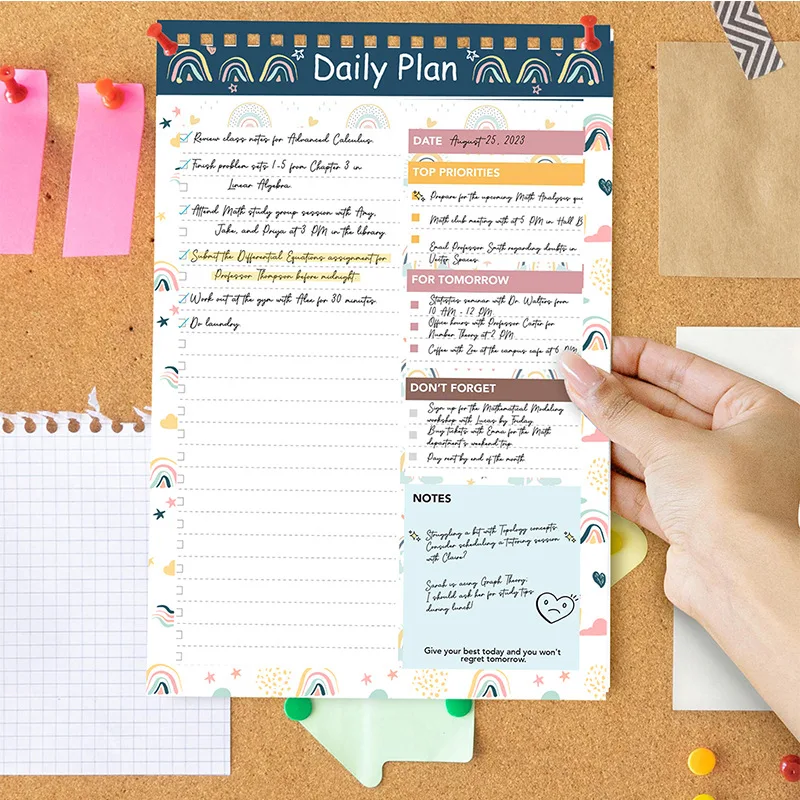 Daily Plan
Review class notes for Advanced Calculus.
Finish problem sets 1-5 from Chapter 3 in
Linear Algebra.
Attend Math study group session with Amy,
Jake, and Priya at 3 PM in the library.
Submit the Differential Equations assignment for
Professor Thompson before midnight.
Work out at the gym with Alex for 30 minutes.
Do laundry.
DATE August 25, 2023
TOP PRIORITIES
Prepare for the upcoming Math Analysis qui
Math club meeting with at 5 PM in Hall B
Email Professor Smith regarding doubts in
Spaces.
FOR TOMORROW
Statistics seminar with Dr. Walters from
10 AM - 12 PM
Office hours with Professor Carter for
Number Theory at 2 PM
Coffee with Zoe at the campus cafe at 6 PM
DON'T FORGET
Sign up for the Mathematical Modeling
workshop with Lucas by Friday.
Buy tickets with Emma for the Math
department's weekend trip.
Pay rent by end of the month.
NOTES
Struggling a bit with Topology concepts.
Consider scheduling a tutoring session
with Claire?
Sarah is acing Graph Theory.
I should ask her for study tips
during lunch!
Give your best today and you won't
regret tomorrow.